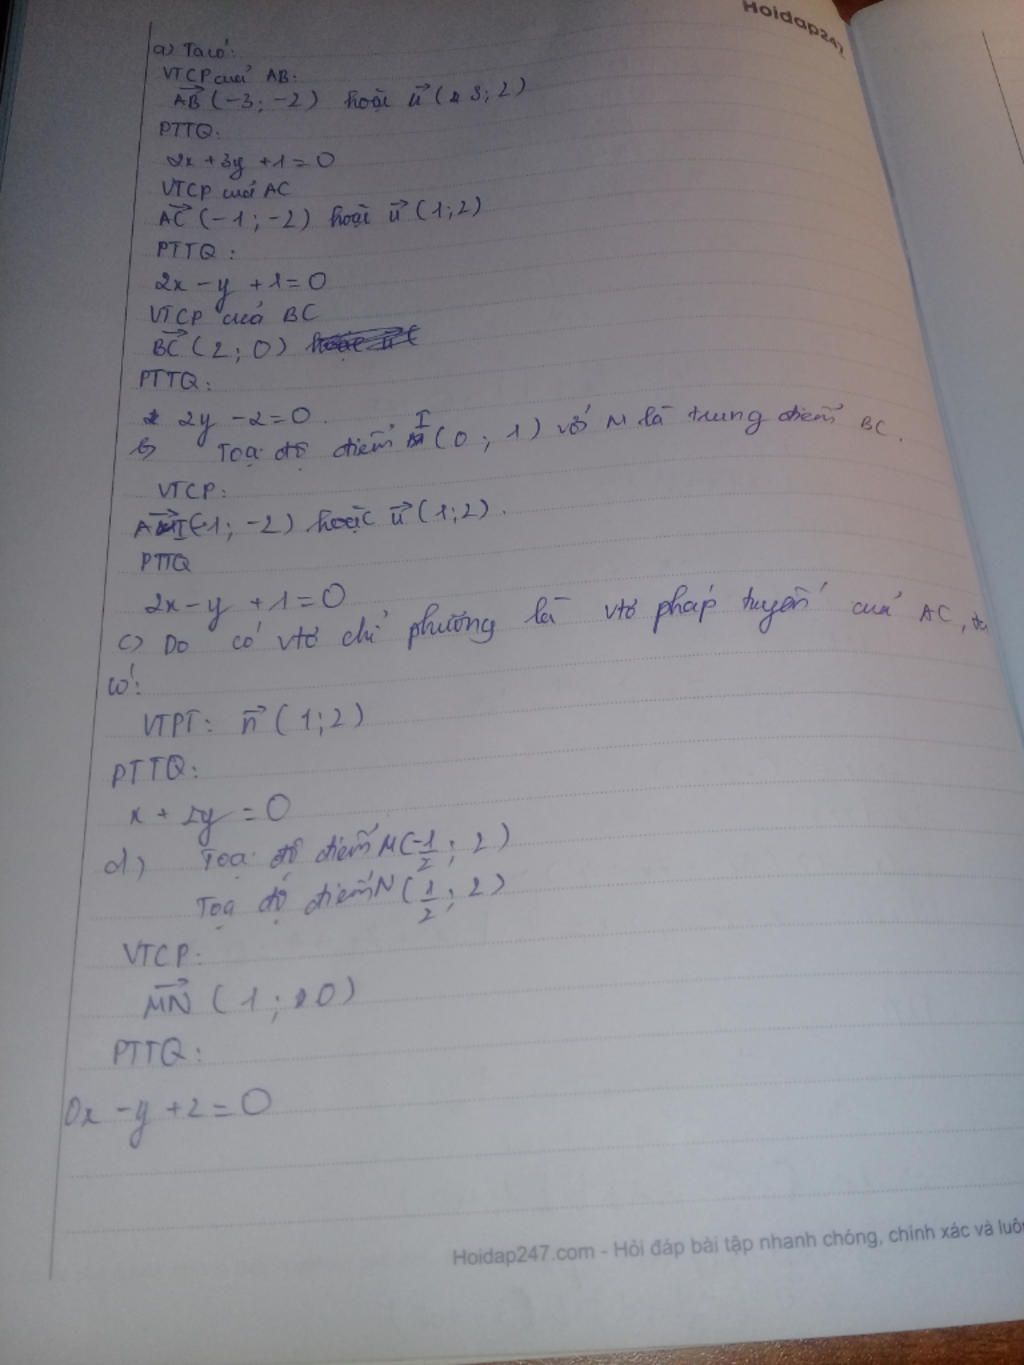 Hoidap247
a) Ta có:
VTCP của AB:
AB (-3; -2) hoặc u (3; 2)
PTTQ:
2x + 3y + 1 = 0
VTCP của AC
AC (-1; -2) hoặc u (1; 2)
PTTQ:
2x - y + 1 = 0
VTCP của BC
BC (2; 0)
PTTQ:
2y - 2 = 0.
b) Toạ độ điểm I (0; 1) với M là trung điểm BC.
VTCP:
AI (-1; -2) hoặc u (1; 2).
PTTQ
2x - y + 1 = 0
c) Do có vtơ chỉ phương là vtơ pháp tuyến của AC, ta
có:
VTPT: n (1; 2)
PTTQ:
x + 2y = 0
d) Toạ độ điểm M (-1/2; 2)
Toạ độ điểm N (1/2; 2)
VTCP:
MN (1; 0)
PTTQ:
0x - y + 2 = 0
Hoidap247.com - Hỏi đáp bài tập nhanh chóng, chính xác và luôn